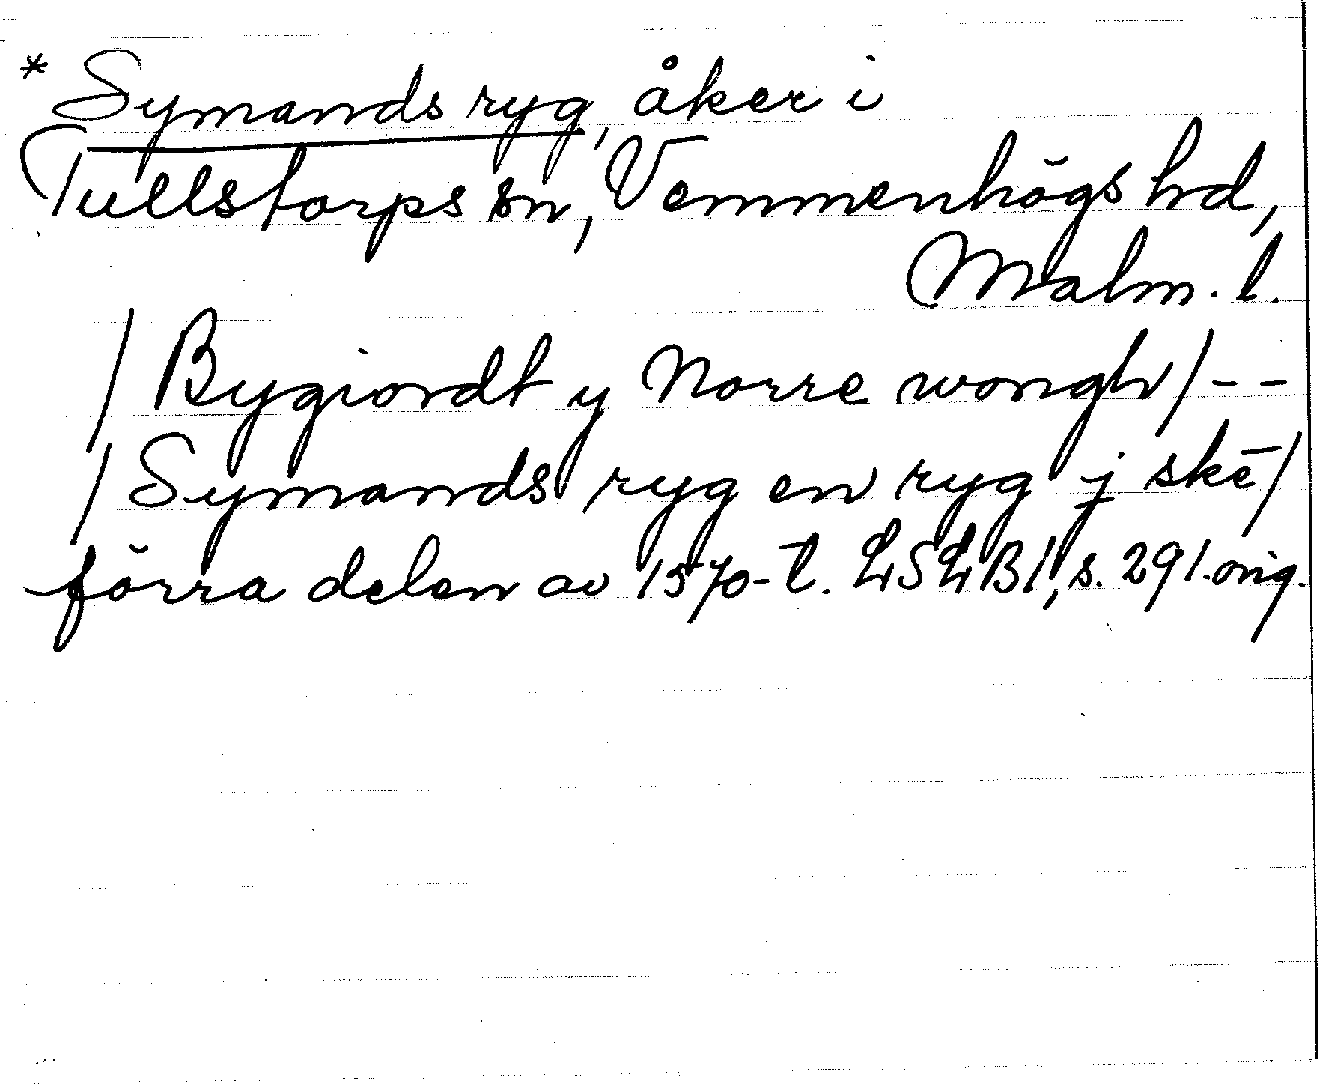 *Symands ryg, åker i
Tullstorps sn, Vemmenhögs hd,
Malm. l.
/ Bygiordt y Norre wongh / - -
/ Symands ryg en ryg j skē /
förra delen av 1570-t. LSLB1, s. 291. orig.